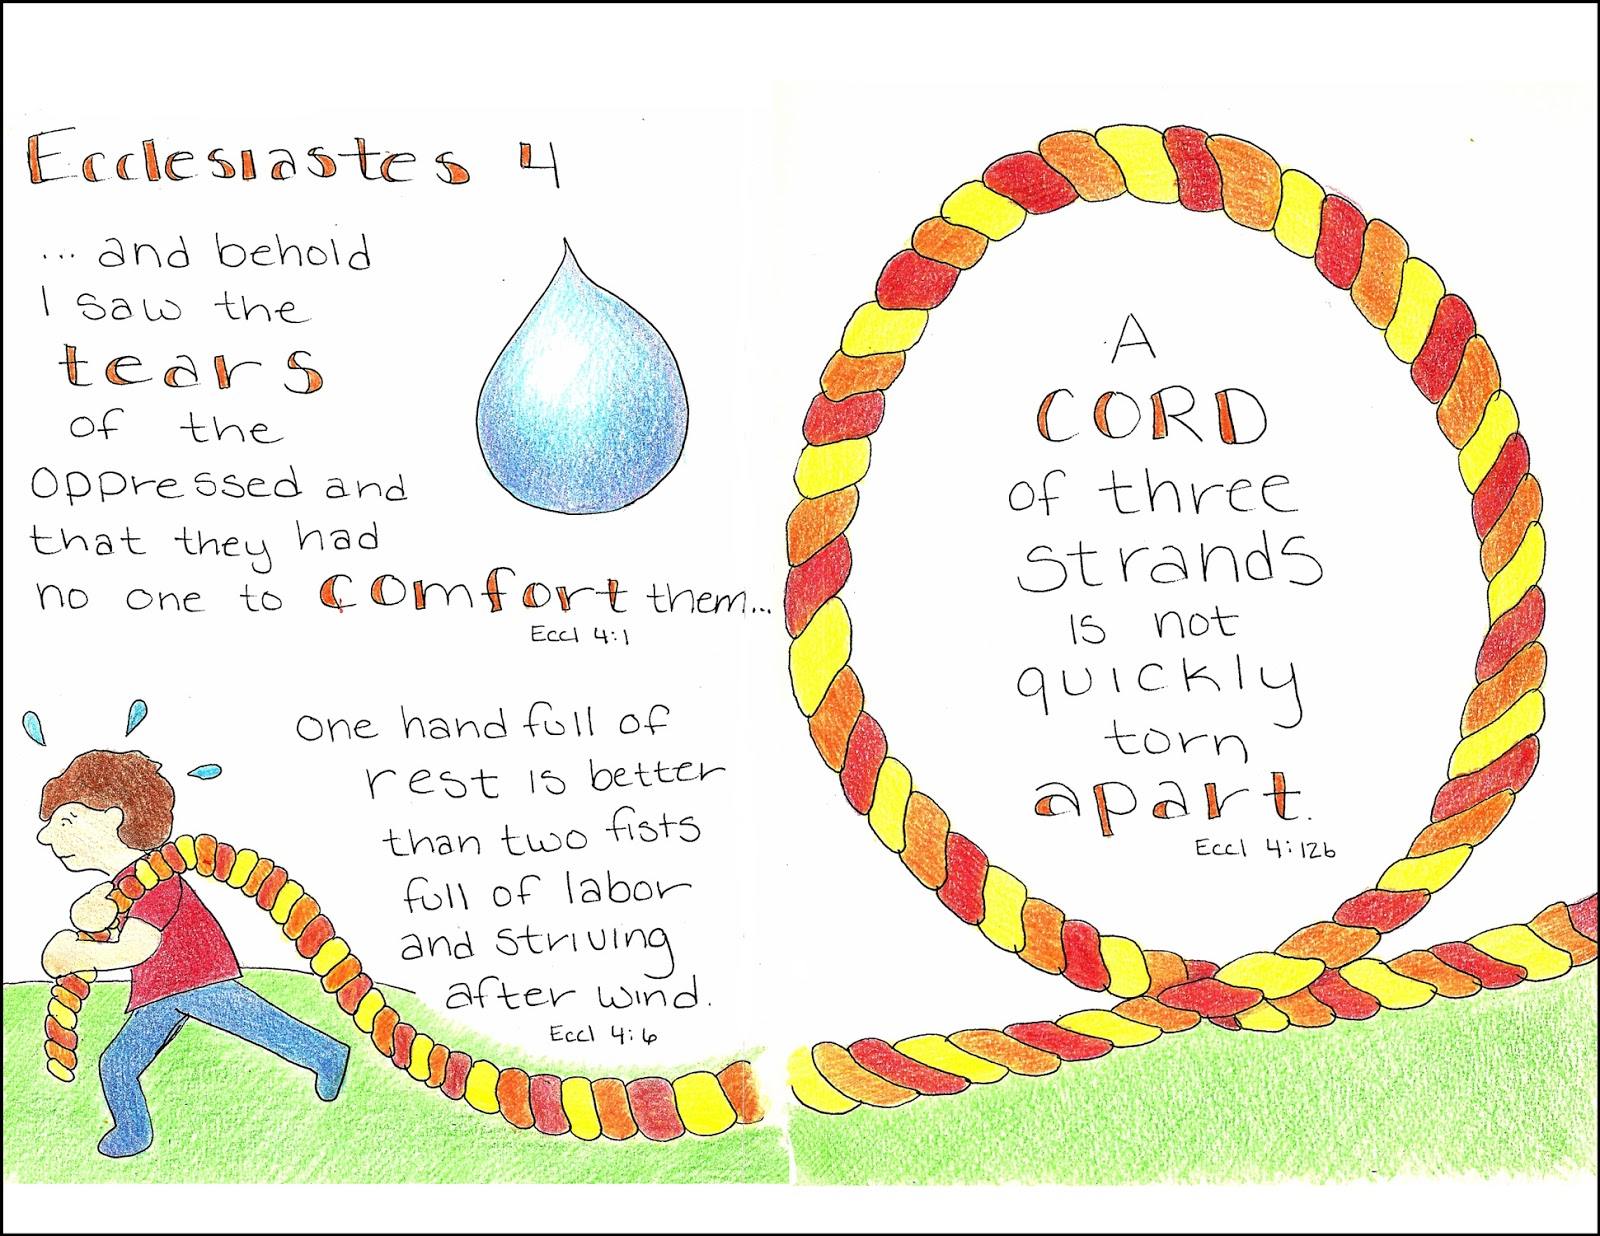 Ecclesiastes 4
... and behold
I saw the
tears
of the
oppressed and
that they had
no one to comfort them...
Eccl 4:1
one hand full of
rest is better
than two fists
full of labor
and striving
after wind.
Eccl 4:6
A
CORD
of three
strands
is not
quickly
torn
apart.
Eccl 4:12b